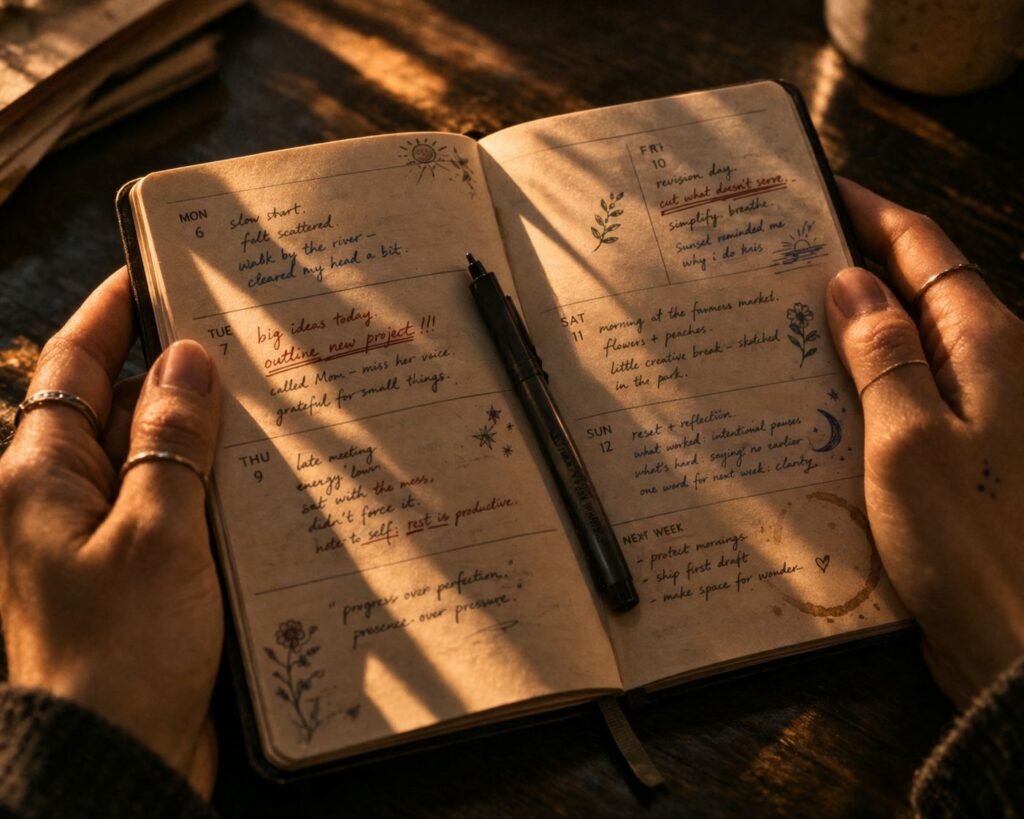 MON
6
slow start.
felt scattered.
walk by the river –
cleared my head a bit.
TUE
7
big ideas today.
outline new project !!!
called Mom – miss her voice.
grateful for small things.
THU
9
late meeting
energy low
sat with the mess,
didn't force it.
note to self: rest is productive.
"progress over perfection,"
presence over pressure."
FRI
10
revision day.
cut what doesn't serve.
simplify. breathe.
Sunset reminded me
why i do this.
SAT
11
morning at the farmers market.
flowers + peaches.
little creative break – sketched
in the park.
SUN
12
reset + reflection.
what worked: intentional pauses
what's hard: saying no earlier
one word for next week: clarity.
NEXT WEEK
- protect mornings
- ship first draft
- make space for wonder